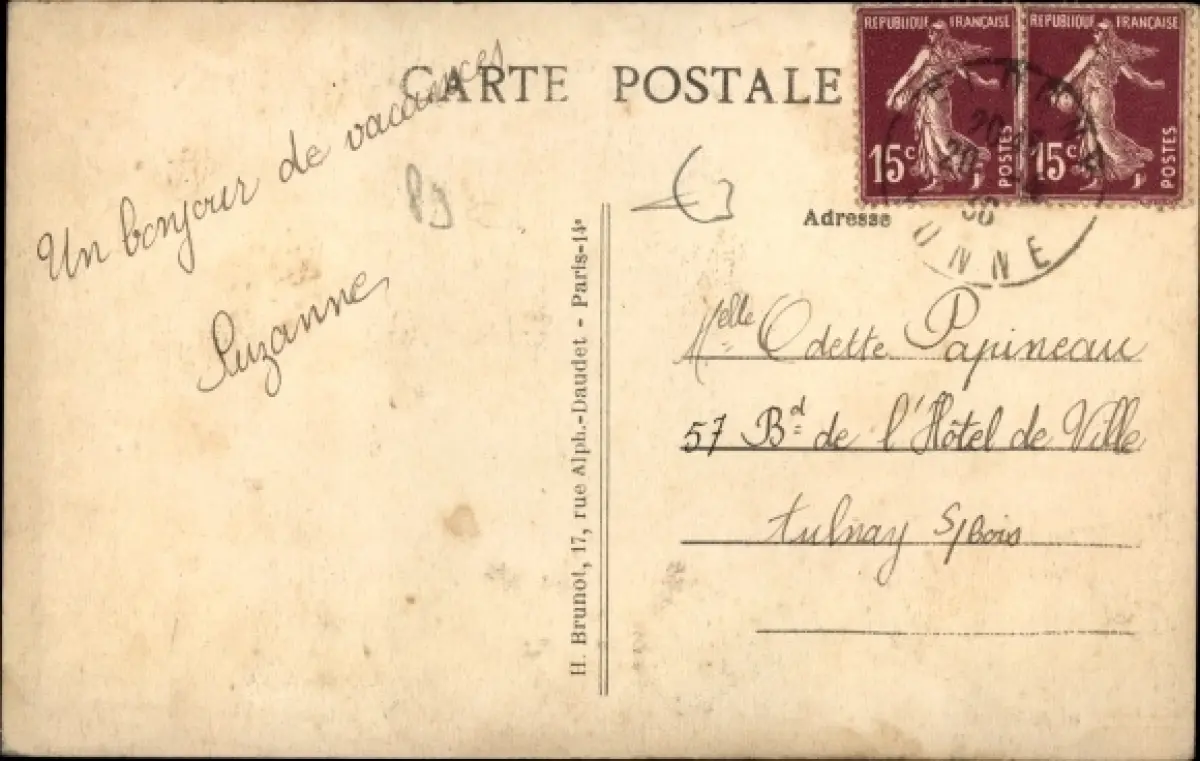 CARTE POSTALE
REPUBLIQUE FRANÇAISE
15c POSTES
REPUBLIQUE FRANÇAISE
15c POSTES
Un bonjour de vacances
Suzanne
H. Brunot, 17, rue Alph.-Daudet - Paris-14e
Adresse
YONNE
Melle Odette Papineau
57 Bd de l'Hôtel de Ville
Aulnay s/Bois